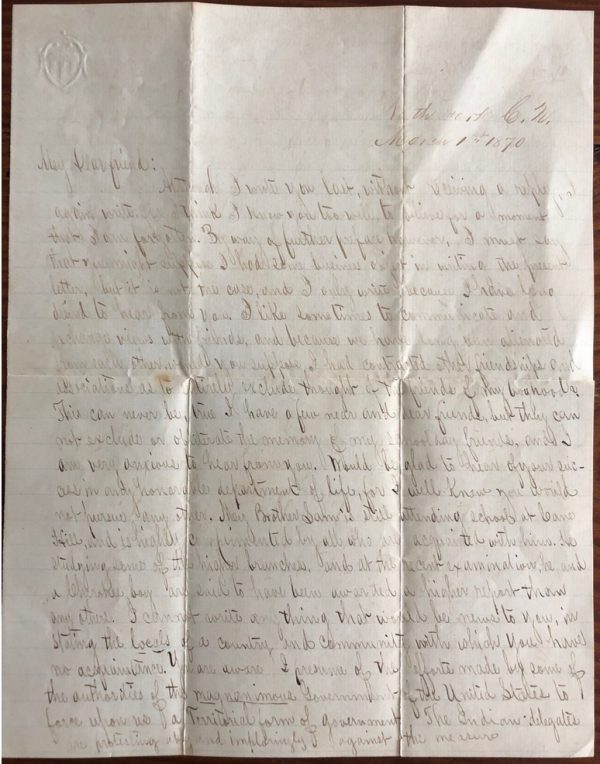 C. N.
March 1st 1870
My Dear friend:
I wrote you last, without receiving a reply I
again write. I think I know you too well, to believe for a moment
that I am forgotten. By way of further preface however, I must say
that you might suppose I had some business object in writing the present
letter, but it is not the case, and I only write because I have long
to hear from you. I like sometimes to communicate and
exchange views with friends, and because we have long been alienated
from each other, would you suppose, I had contracted other friendships and
associations as to entirely exclude thought of the friends of my boyhood.
This can never be, true I have a few near and dear friends, but they can
not exclude or obliterate the memory of my school day friends, and I
am very anxious to hear from you. Would be glad to hear of your suc-
cess in any honorable department of life, for I well know you would
not pursue any other. My Brother is still attending school at Cane
Hill, and is highly complimented by all who are acquainted with him. He
studying some of the higher branches, and at the recent examination, he and
a Cherokee boy are said to have been awarded a higher report than
any others. I cannot write anything that would be news to you, in
stating the locals of a country and community with which you have
no acquaintance. You are aware I presume of the efforts made by some of
the authorities of the magnanimous Government of the United States to
force upon us a Territorial form of government. The Indian delegates
are protesting and imploringly against the measure